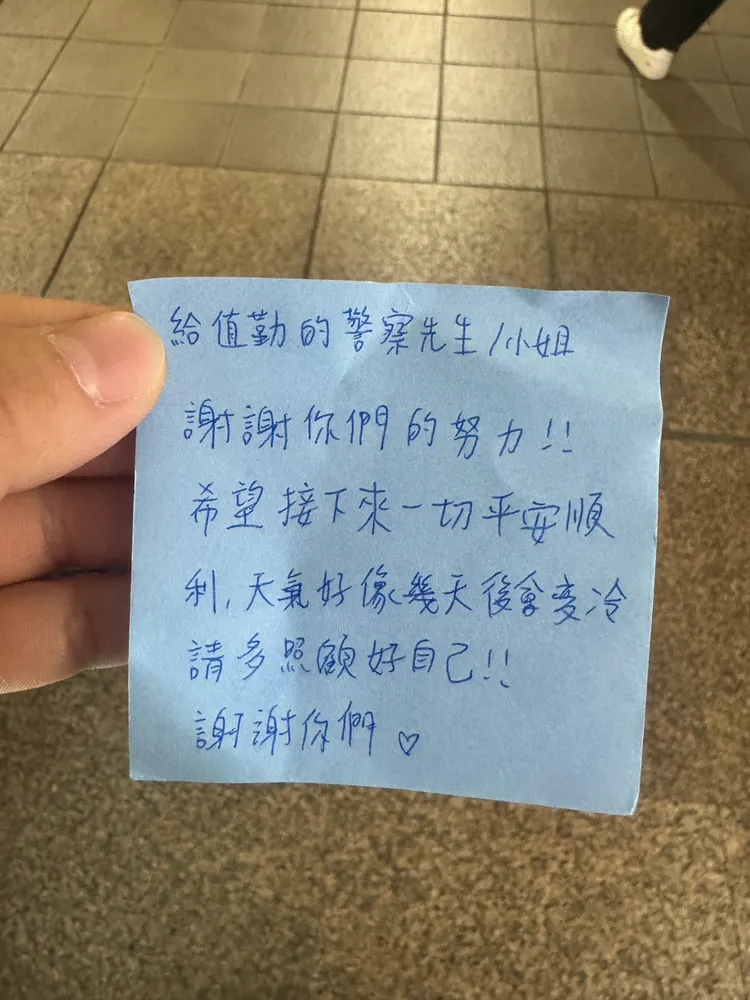 給值勤的警察先生/小姐
謝謝你們的努力!!
希望接下來一切平安順
利,天氣好像幾天後會变冷
請多照顧好自己!!
謝謝你們♡